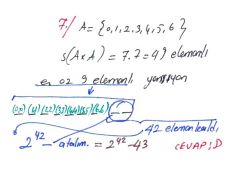 7./ A = {0,1,2,3,4,5,6}
s(AxA) = 7.7 = 49 elemanlı
en az 9 elemanlı yansıyan
(0,0) (1,1) (2,2) (3,3) (4,4) (5,5) (6,6) — —
42 eleman kaldı
2^42 - atalım. = 2^42 - 43
CEVAP: D